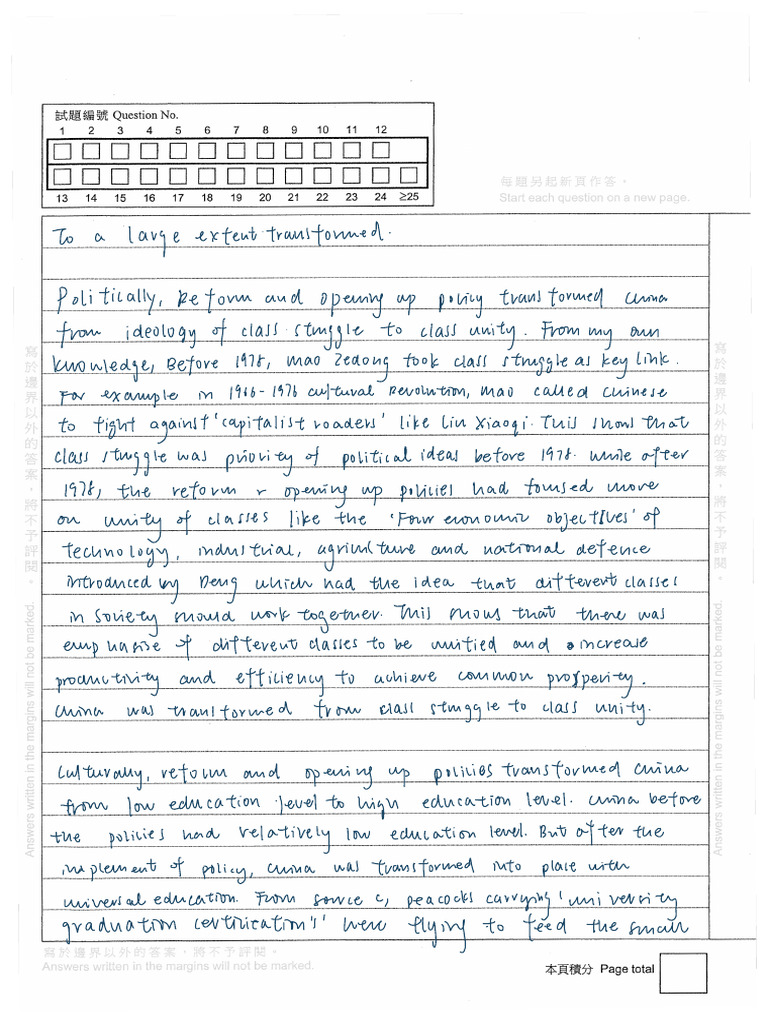 試題編號 Question No.
1 2 3 4 5 6 7 8 9 10 11 12
13 14 15 16 17 18 19 20 21 22 23 24 ≥25
每題另起新頁作答。
Start each question on a new page.
To a large extent transformed.
Politically, Reform and opening up policy transformed China
from ideology of class struggle to class unity. From my own
knowledge, Before 1978, Mao Zedong took class struggle as key link.
For example in 1966-1976 Cultural Revolution, Mao called Chinese
to fight against 'capitalist roaders' like Liu Xiaoqi. This shows that
class struggle was priority of political ideas before 1978. While after
1978, the reform & opening up policies had focused more
on unity of classes like the 'Four economic objectives' of
technology, industrial, agriculture and national defence
introduced by Deng which had the idea that different classes
in society should work together. This shows that there was
emphasise of different classes to be unified and increase
productivity and efficiency to achieve common prosperity.
China was transformed from class struggle to class unity.
Culturally, reform and opening up policies transformed China
from low education level to high education level. China before
the policies had relatively low education level. But after the
implement of policy, China was transformed into place with
universal education. From source C, peacocks carrying 'university
graduation certifications' were flying to feed the small
寫於邊界以外的答案,將不予評閱。
Answers written in the margins will not be marked.
寫於邊界以外的答案,將不予評閱。
Answers written in the margins will not be marked.
寫於邊界以外的答案,將不予評閱。
Answers written in the margins will not be marked.
本頁積分 Page total